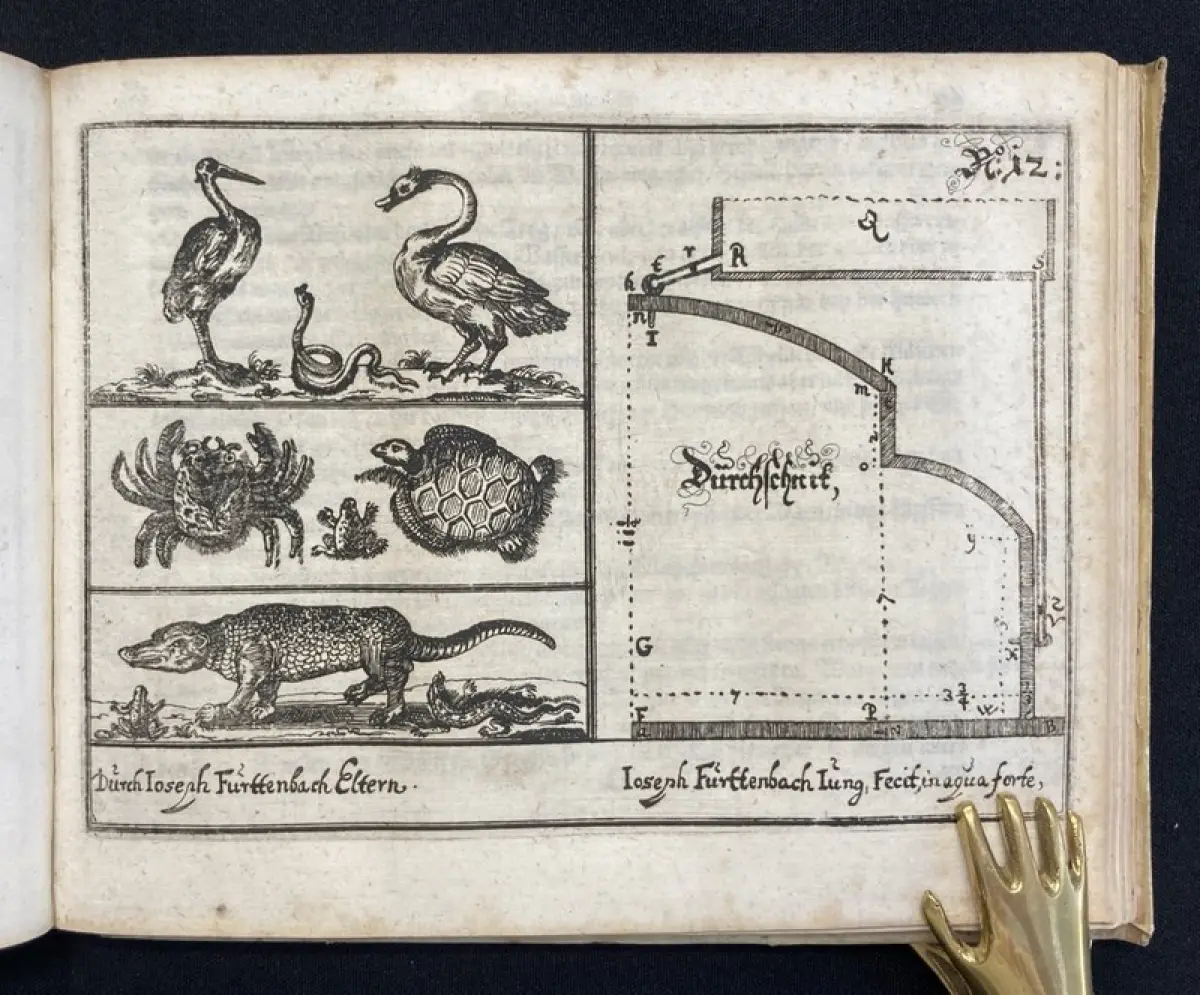 No. 12:
Q
r R
t
S
h
n
I
K
m
2
o
Durchschnit,
y
7
2
5
G
X
7
3 3/4
F
P
w
a
B
Durch Ioseph Fürttenbach Eltern.
Ioseph Fürttenbach Iung, Fecit, in aqua forte,